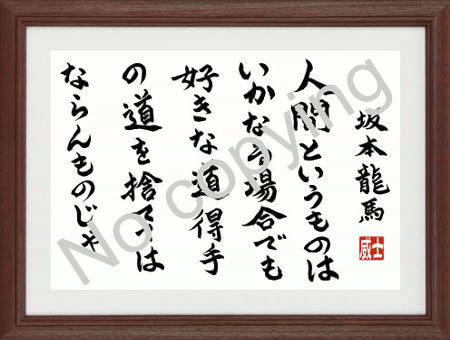 坂本龍馬
威士
人間というものは
いかなる場合でも
好きな道得手
の道を捨てては
ならんものじゃ
No copying